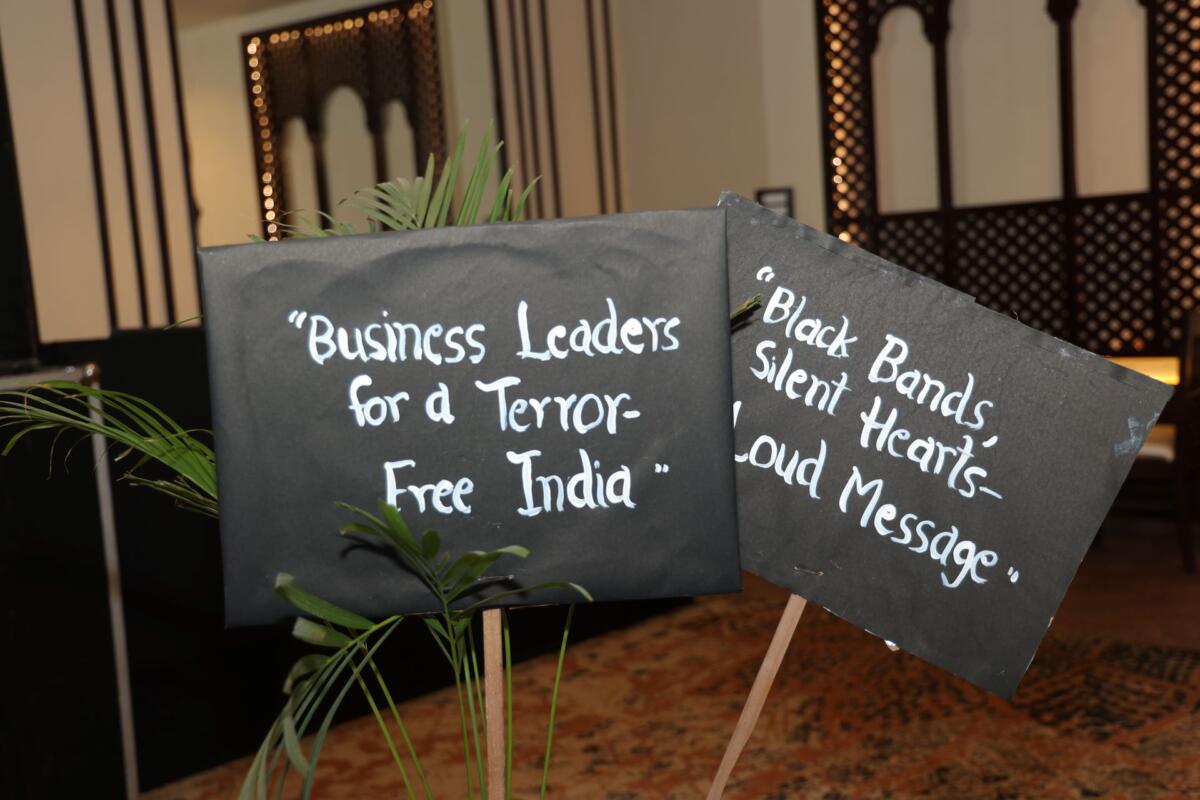 "Business Leaders
for a Terror-
Free India"
"Black Bands,
Silent Hearts-
Loud Message"